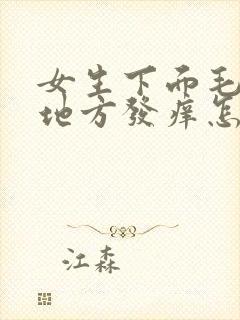 女生下面毛
地方發痒怎
江森